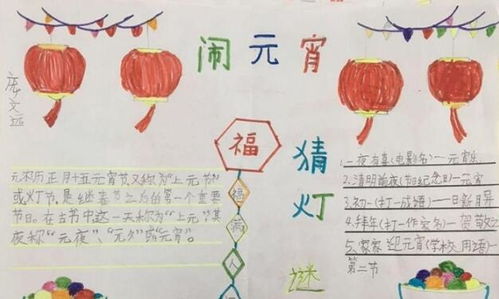 闹元宵
文远
福
猜灯谜
福满人
历正月十五元宵节又称为"上元节"
或灯节,是继春节之后的第一个重要
节日。在古书中这一天称为"上元"其
夜称"元夜"、"元夕"或"元宵"。
1.一夜为真(电影名)一元宵
2.清明前夜(节日纪念日)一元宵
3.初一(打一成语)一日新月异
4.拜年(打一作家名)一贺敬之
5.家家迎元宵(学校用语)一
第二节